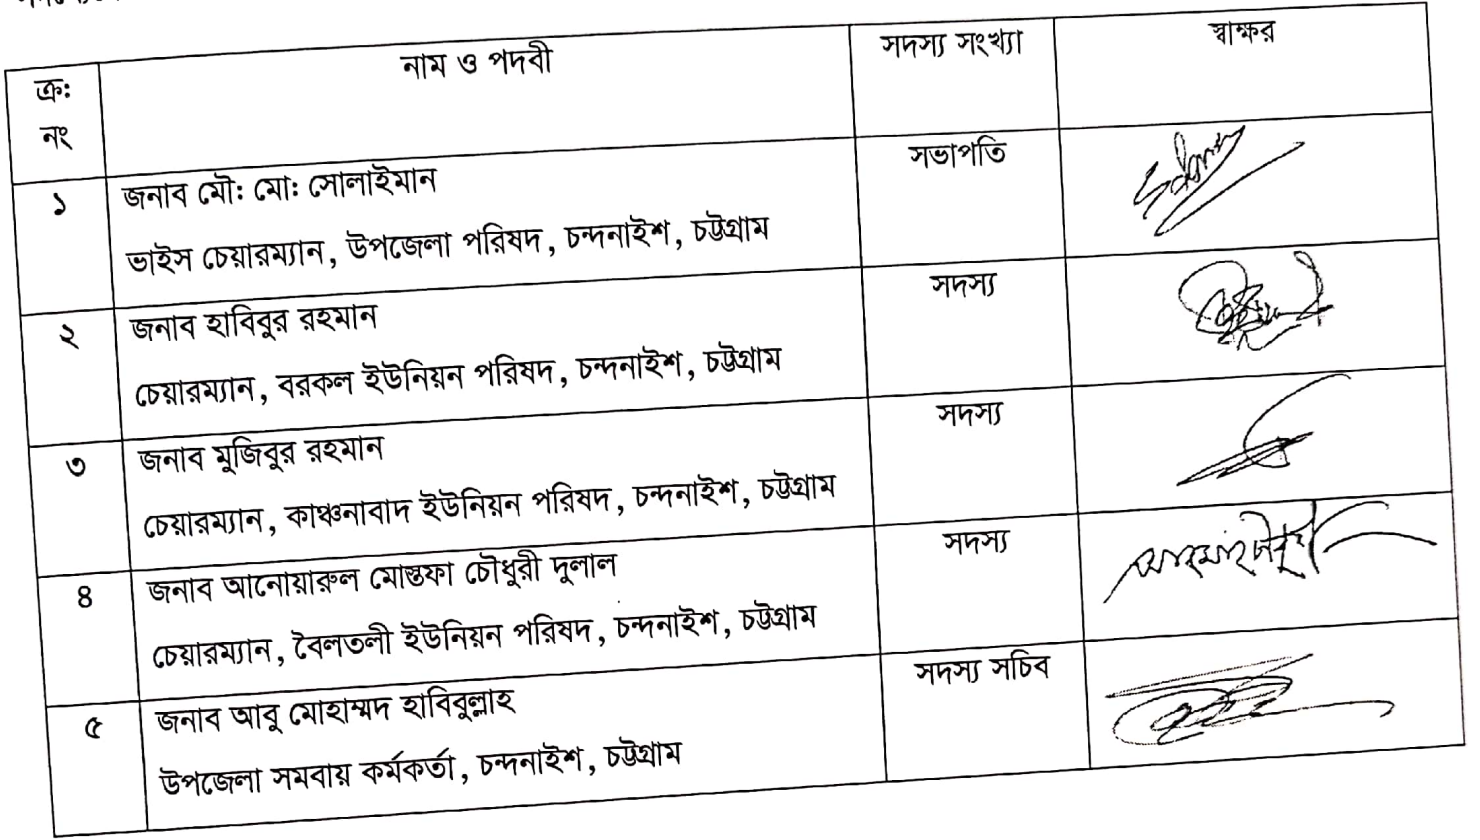 ক্র: নং	নাম ও পদবী	সদস্য সংখ্যা	স্বাক্ষর
১	জনাব মৌ: মো: সোলাইমান	সভাপতি
ভাইস চেয়ারম্যান, উপজেলা পরিষদ, চন্দনাইশ, চট্টগ্রাম
২	জনাব হাবিবুর রহমান	সদস্য
চেয়ারম্যান, বরকল ইউনিয়ন পরিষদ, চন্দনাইশ, চট্টগ্রাম
৩	জনাব মুজিবুর রহমান	সদস্য
চেয়ারম্যান, কাঞ্চনাবাদ ইউনিয়ন পরিষদ, চন্দনাইশ, চট্টগ্রাম
৪	জনাব আনোয়ারুল মোস্তফা চৌধুরী দুলাল	সদস্য
চেয়ারম্যান, বৈলতলী ইউনিয়ন পরিষদ, চন্দনাইশ, চট্টগ্রাম
৫	জনাব আবু মোহাম্মদ হাবিবুল্লাহ	সদস্য সচিব
উপজেলা সমবায় কর্মকর্তা, চন্দনাইশ, চট্টগ্রাম